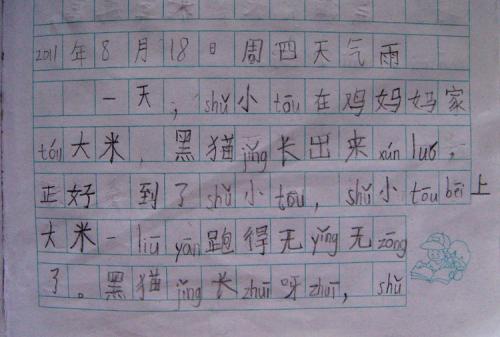 2011年8月18日 周四天气雨
一天，shǔ小tōu在鸡妈妈家
tóu大米，黑猫jǐng长出来xún luó，
正好 到了shǔ小tōu，shǔ小tōu bēi上
大米一liū yān跑得无yǐng无zōng
了。黑猫jǐng长zhuī呀zhuī，shǔ